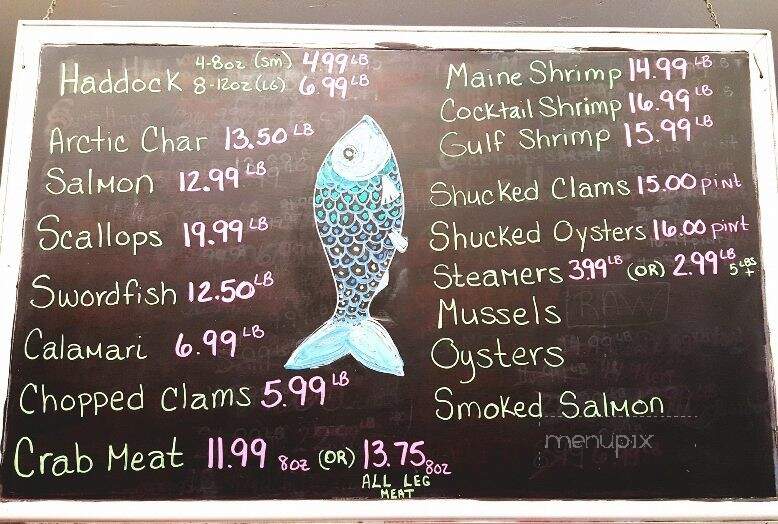 Haddock 4-8oz (sm) 4.99 LB
8-12oz (LG) 6.99 LB
Arctic Char 13.50 LB
Salmon 12.99 LB
Scallops 19.99 LB
Swordfish 12.50 LB
Calamari 6.99 LB
Chopped Clams 5.99 LB
Crab Meat 11.99 8oz (OR) 13.75 8oz
ALL LEG
MEAT
Maine Shrimp 14.99 LB
Cocktail Shrimp 16.99 LB
Gulf Shrimp 15.99 LB
Shucked Clams 15.00 pint
Shucked Oysters 16.00 pint
Steamers 399 LB (OR) 2.99 LB 5 LBS +
Mussels
Oysters
Smoked Salmon
menupix